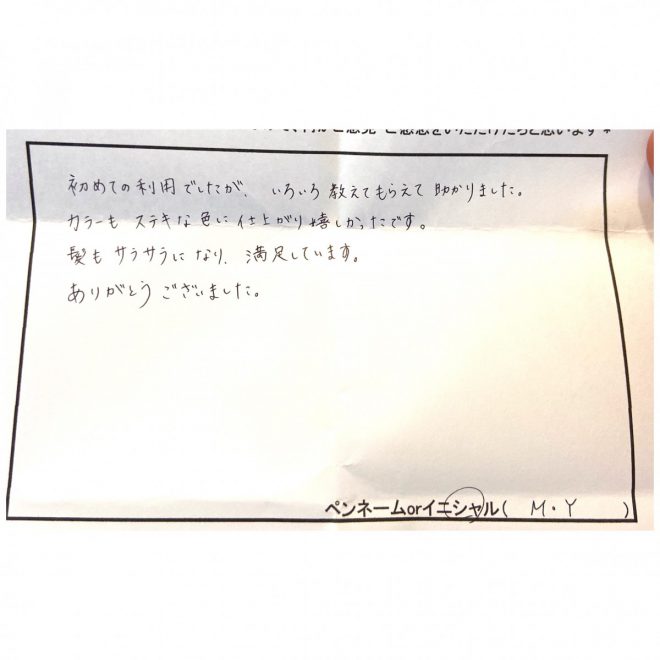 ご意見・ご感想をいただけたらと思います*
初めての利用でしたが、いろいろ教えてもらえて助かりました。
カラーもステキな色に仕上がり嬉しかったです。
髪もサラサラになり、満足しています。
ありがとうございました。
ペンネームorイニシャル( M・Y )